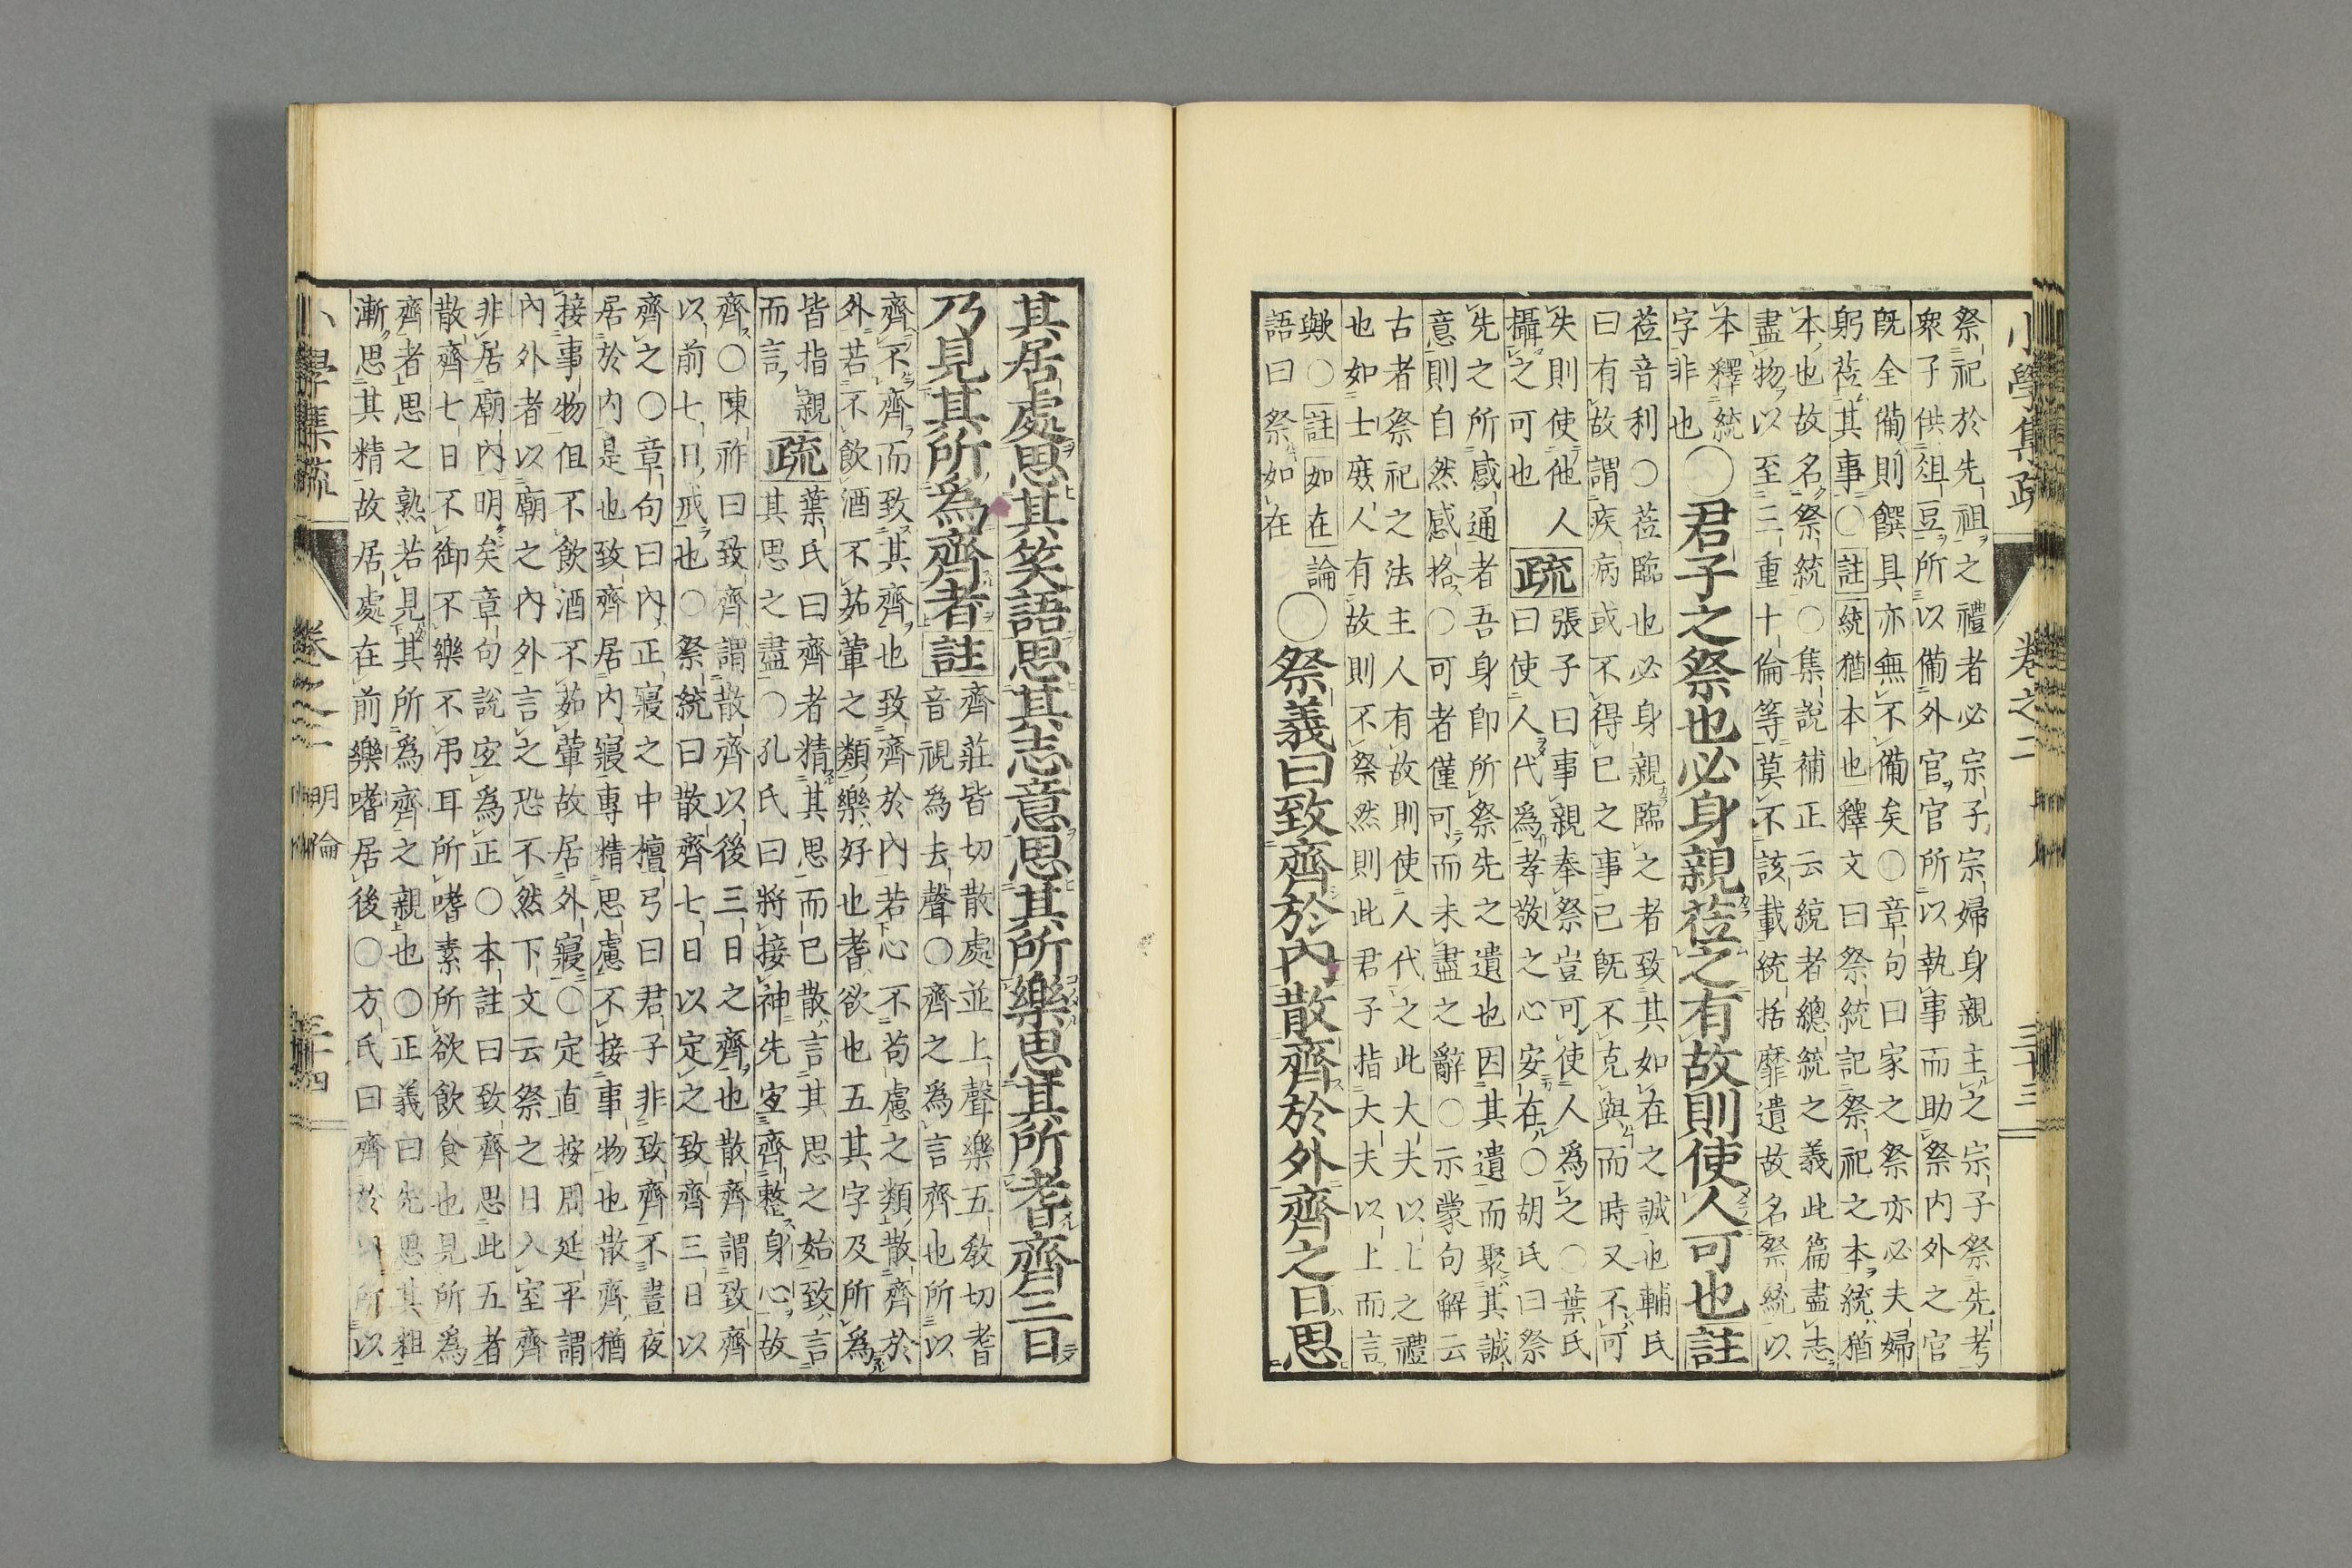 小學集疏 卷之二 三十三
祭祀於先祖之禮者必宗子宗婦身親主之宗子祭先考
衆子供俎豆所以備外官官所以執事而助祭内外之官
既全備則饌具亦無不備矣○章句曰家之祭亦必夫婦
躬莅其事○註統猶本也釋文曰祭統記祭祀之本統猶
本也故名祭統○集說補正云統者總統之義此篇盡志
盡物以至三重十倫等莫不該載統括靡遺故名祭統以
本釋統
字非也○君子之祭也必身親莅之有故則使人可也註
莅音利○莅臨也必身親臨之者致其如在之誠也輔氏
曰有故謂疾病或不得已之事己既不克與而時又不可
失則使他人
攝之可也疏張子曰事親奉祭豈可使人爲之○葉氏
曰使人代爲孝敬之心安在○胡氏曰祭
先之所感通者吾身卽所祭先之遺也因其遺而聚其誠
意則自然感格○可者僅可而未盡之辭○示蒙句解云
古者祭祀之法主人有故則使人代之此大夫以上之禮
也如士庶人有故則不祭然則此君子指大夫以上而言
歟○註如在論
語曰祭如在○祭義曰致齊於內散齊於外齊之日思
其居處思其笑語思其志意思其所樂思其所耆齊三日
乃見其所爲齊者註齊莊皆切散處並上聲樂五敎切耆
音視爲去聲○齊之爲言齊也所以
齊不齊而致其齊也致齊於內若心不苟慮之類散齊於
外若不飲酒不茹葷之類樂好也耆欲也五其字及所爲
皆指親
而言疏葉氏曰齊者精其思而已散言其思之始致言
其思之盡○孔氏曰將接神先宜齊整身心故
齊○陳祚曰致齊謂散齊以後三日之齊也散齊謂致齊
以前七日戒也○祭統曰散齊七日以定之致齊三日以
齊之○章句曰內正寢之中檀弓曰君子非致齊不晝夜
居於內是也致齊居內寢專精思慮不接事物也散齊猶
接事物但不飲酒不茹葷故居外寢○定直按周延平謂
內外者以廟之內外言之恐不然下文云祭之日入室齊
非居廟內明矣章句說宜爲正○本註曰致齊思此五者
散齊七日不御不樂不弔耳所嗜素所欲飲食也見所爲
齊者思之熟若見其所爲齊之親也○正義曰先思其粗
漸思其精故居處在前樂嗜居後○方氏曰齊於所以
小學集疏 卷之二 明倫 三十四